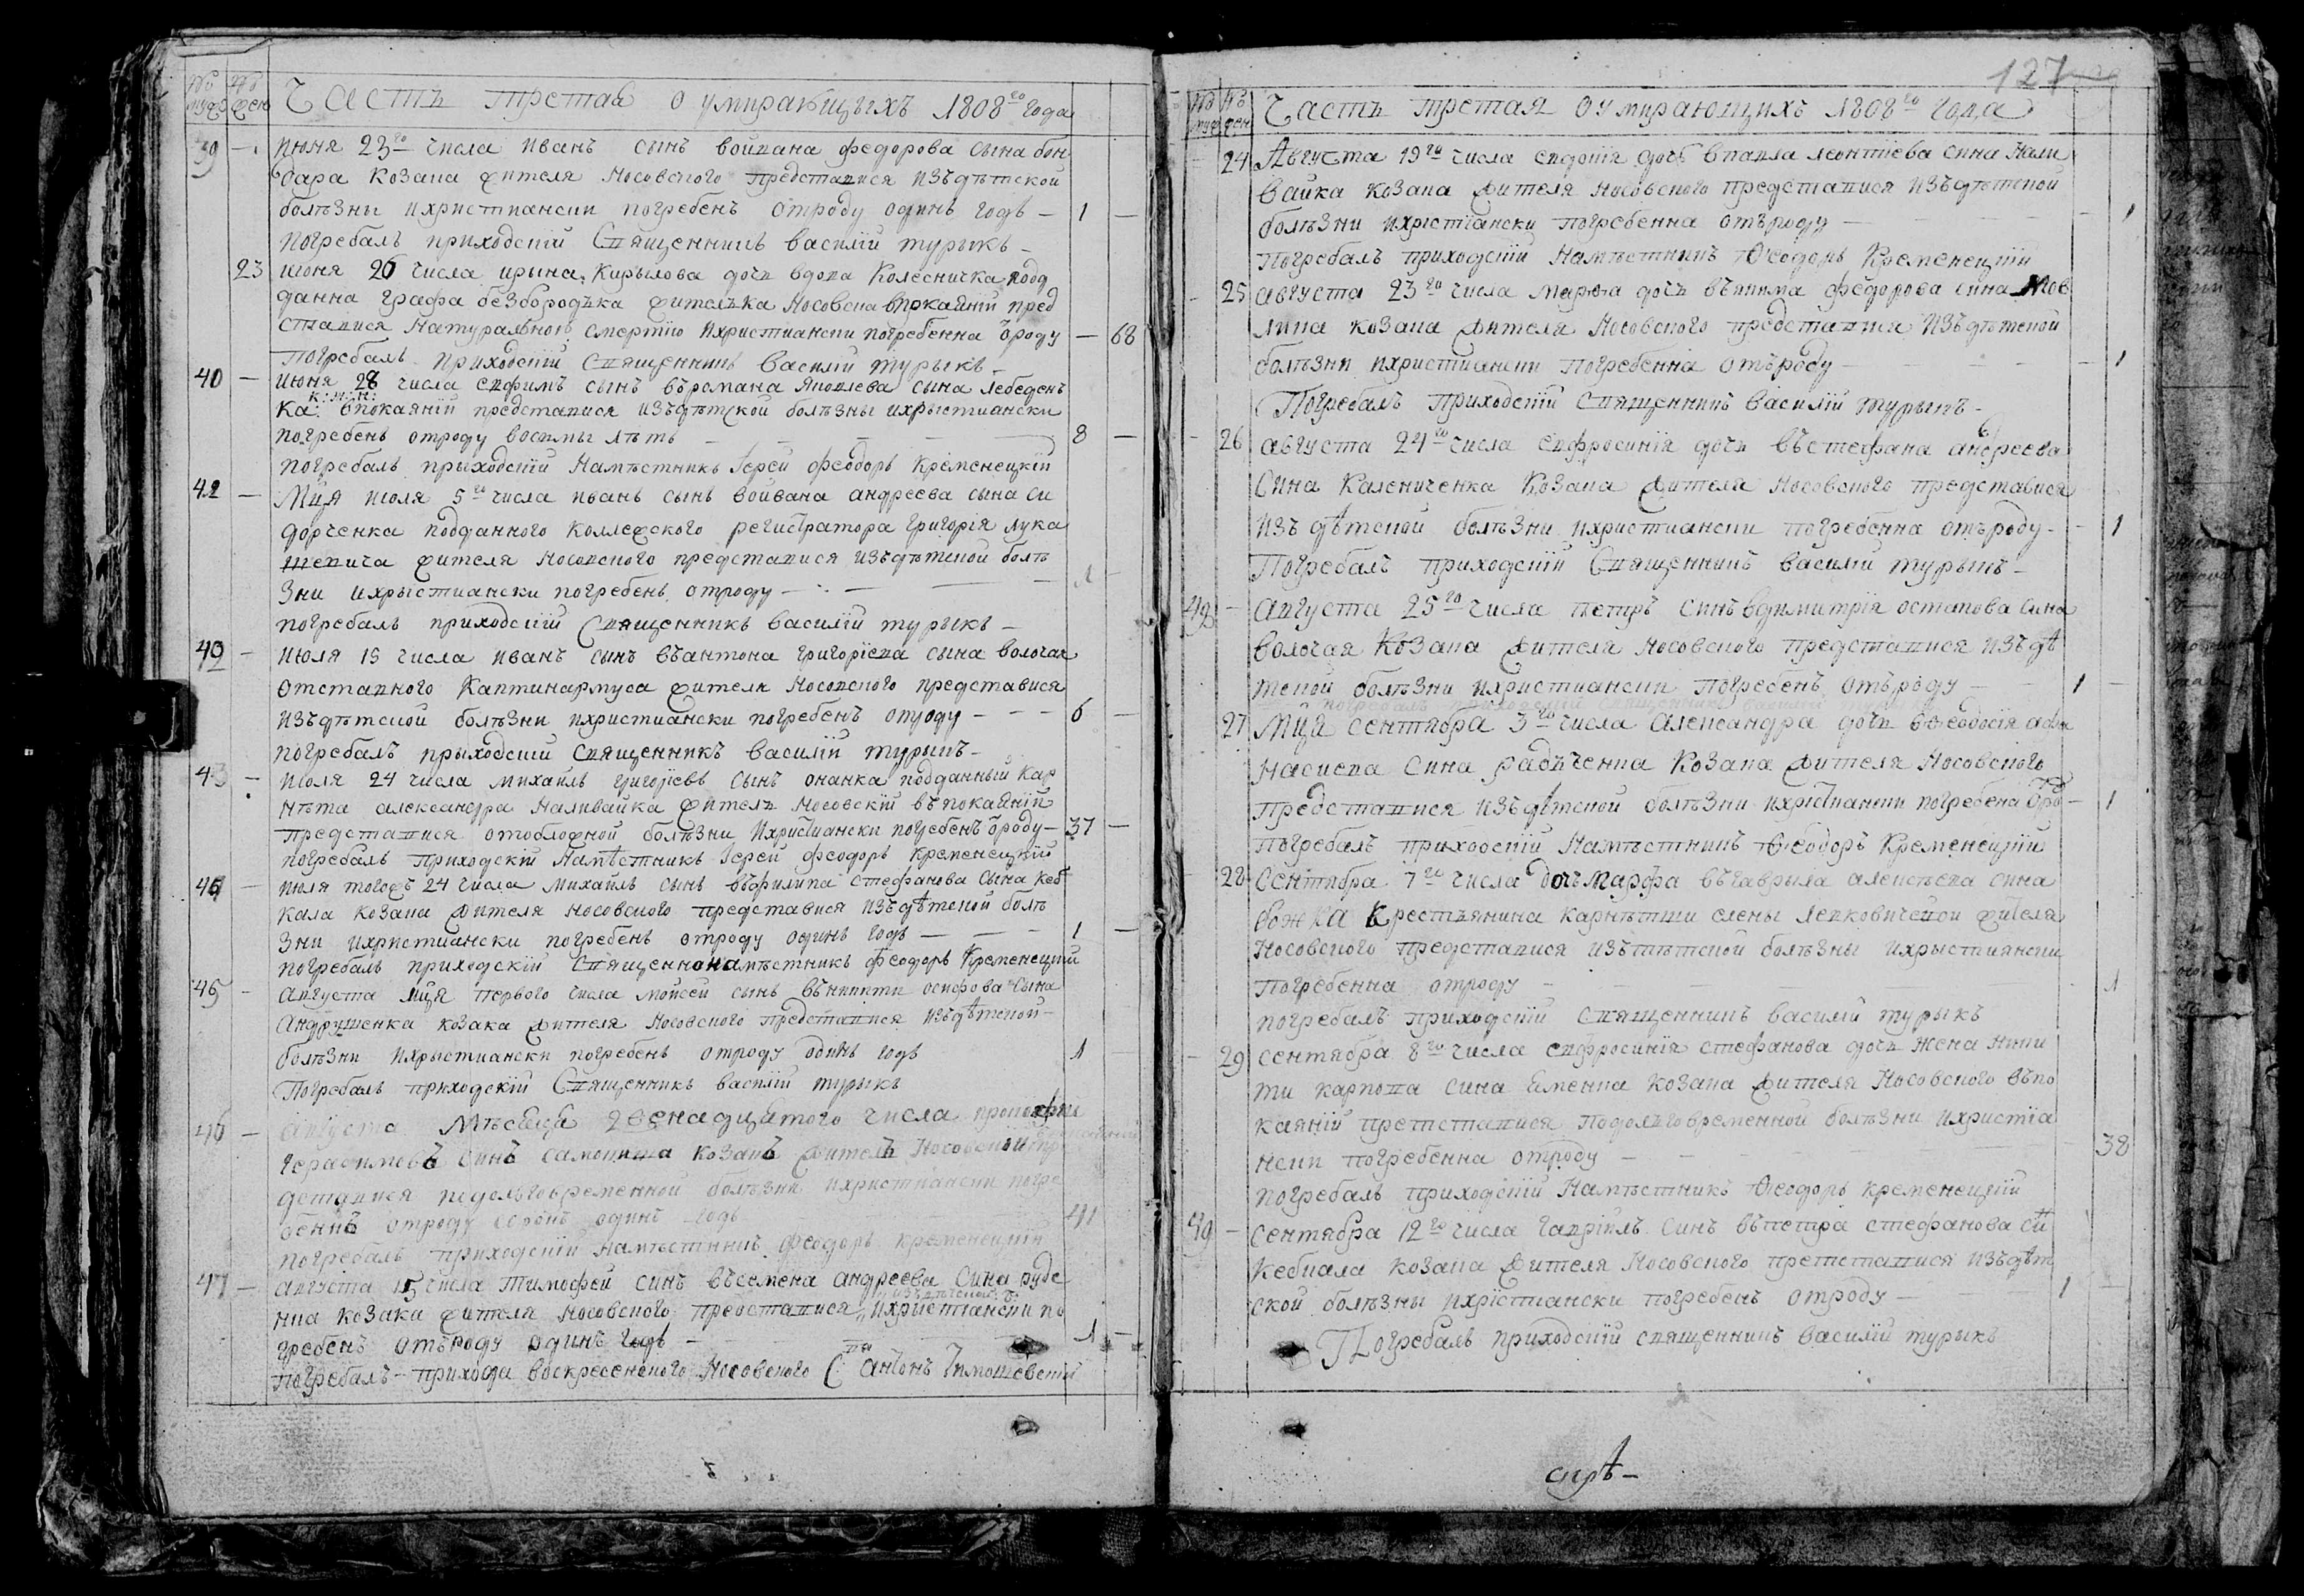 Часть третая о умирающихъ 1808го года
39 — июня 23го числа иванъ сынъ войвана федорова сына бон
дара козака жителя носовского представися изъдѣтской
болѣзны ихристиански погребенъ отроду одинъ годъ — 1 —
погребалъ приходскій священникъ василій турыкъ —
23 июня 26 числа ирына кирылова дочь вдова колесничка подд
данна графа безбородъка жителька носовска впокаяніи пред
ставися натуральною смертію ихристиански погребенна ѿроду — 68
погребалъ приходскій священникъ василій турыкъ —
40 — июня 28 числа ефимъ сынъ върѡмана яковлева сына лебеденъ
к: ж: н:
ка впокаяніи представися изъдѣтской болѣзны ихрыстиански
погребенъ отроду восимы лѣтъ — — — — 8 —
погребалъ прыходскій намѣстникъ іерей феодоръ кременецкій
42 — Мца июля 5го числа иванъ сынъ войвана андреева сына си
дорченка подданного коллежского регистратора григорія лука
шевича жителя носовского представися изъдѣтской болѣ
зни ихрыстиански погребенъ отроду — — — 1 —
погребалъ приходскій священникъ василій турыкъ —
42 — июля 15 числа иванъ сынъ въантона григоріева сына волочая
отставного каптинармуса жителя носовского представися
изъдѣтской болѣзны ихристиански погребенъ отроду — — — 6 —
погребалъ прыходскій священникъ василій турыкъ —
43 — июля 24 числа михаилъ григоріевъ сынъ онанка подданный кар
нѣта александра наливайка житель носовскій въпокаяніи
представися отобложной болѣзни ихристиански погребенъ ѿроду — 37 —
погребалъ приходскій намѣстникъ іерей феодоръ кременецкій
44 — июля тогожъ 24 числа михаилъ сынъ въфилипа стефанова сына кеб
кала козака жителя носовского представися изъдѣтской болѣ
зни ихристиански погребенъ отроду одинъ годъ — — — 1 —
погребалъ приходскій священнонамѣстникъ феодоръ кременецкій
45 — августа мця первого числа мойсей сынъ въникиты осифова сына
андрушенка козака жителя носовского представися изъдѣтской —
болѣзни ихрыстиански погребенъ отроду одинъ годъ 1
погребалъ приходскій священникъ василій турыкъ
46 — августа мѣсяца двенадцѣтого числа
герасимовъ синъ козакъ житель носовскій
детавися педолъговременной болѣзни ихристиански погре
бенъ отроду сорокъ одинъ годъ 41
погребалъ приходскій намѣстникъ феодоръ кременецкій
47 — августа 15 числа тимофей синъ въсемена андреева сина руде
изъдѣтской: б:
нка козака жителя носовского представися „ ихристиански по
гребенъ отъроду одинъ годъ — 1 —
погребалъ прихода воскресенского носовского С: антонъ тимошевскій
127
Часть третая о умирающихъ 1808го года
— 24 августа 19го числа евдокія дочь впавла леонтіева сина нали
вайка козака жителя носовского представися изъдѣтской
болѣзни ихристіански погребенна отъроду — — 1
погребалъ приходскій намѣстникъ Ѳеодоръ Кременецкій
— 25 августа 23го числа марѳа дочь въякима федорова сина
лика козака жителя носовского представися изъдѣтской
болѣзни ихристиански погребенна отъроду — — 1
Погребалъ приходскій священникъ василій турыкъ —
— 26 августа 24го числа ефросинія дочь въстефана андреева
сина каленниченка козака жителя носовского представися
изъ дѣтской болѣзни ихристиански погребенна отъроду — — 1
Погребалъ приходскій священникъ василій турыкъ —
48 — августа 25го числа петръ синъ вдимитрія остапова сина
волочая козака жителя носовского представися изъдѣ
тской болѣзни ихристиански погребенъ отъроду — 1 —
27 Мца сентября 3го числа александра дочь вѲеодосія афа
насиева сина радъченка козака жителя носовского
представися изъдѣтской болѣзни ихристиански погребена ѿро — 1
погребалъ приходскій намѣстникъ Ѳеодоръ Кременецкій
28 сентября 7го числа дочь марфа въгаврыла алексѣева сина
божка крестьянина карнѣтши елены левковичевой жителя
носовского представися изътѣтской болѣзны ихрыстиянски
погребенна отроду — — 1
погребалъ приходскій священникъ василій турыкъ
— 29 сентября 8го числа ефросинія стефанова дочь жена ники
ти карпова сина еменка козака жителя носовского въпо
каяніи претставися подолъговременной болѣзни ихристіа
нски погребенна отроду — — — 38
погребалъ приходскій намѣстникъ Ѳеодоръ кременецкій
49 — сентября 12го числа гавріилъ синъ въпетра стефанова сн
кебкала козака жителя носовского претставися изъдѣт
ской болѣзны ихрістиански погребенъ отроду — 1 —
Погребалъ приходскій священникъ василій турыкъ